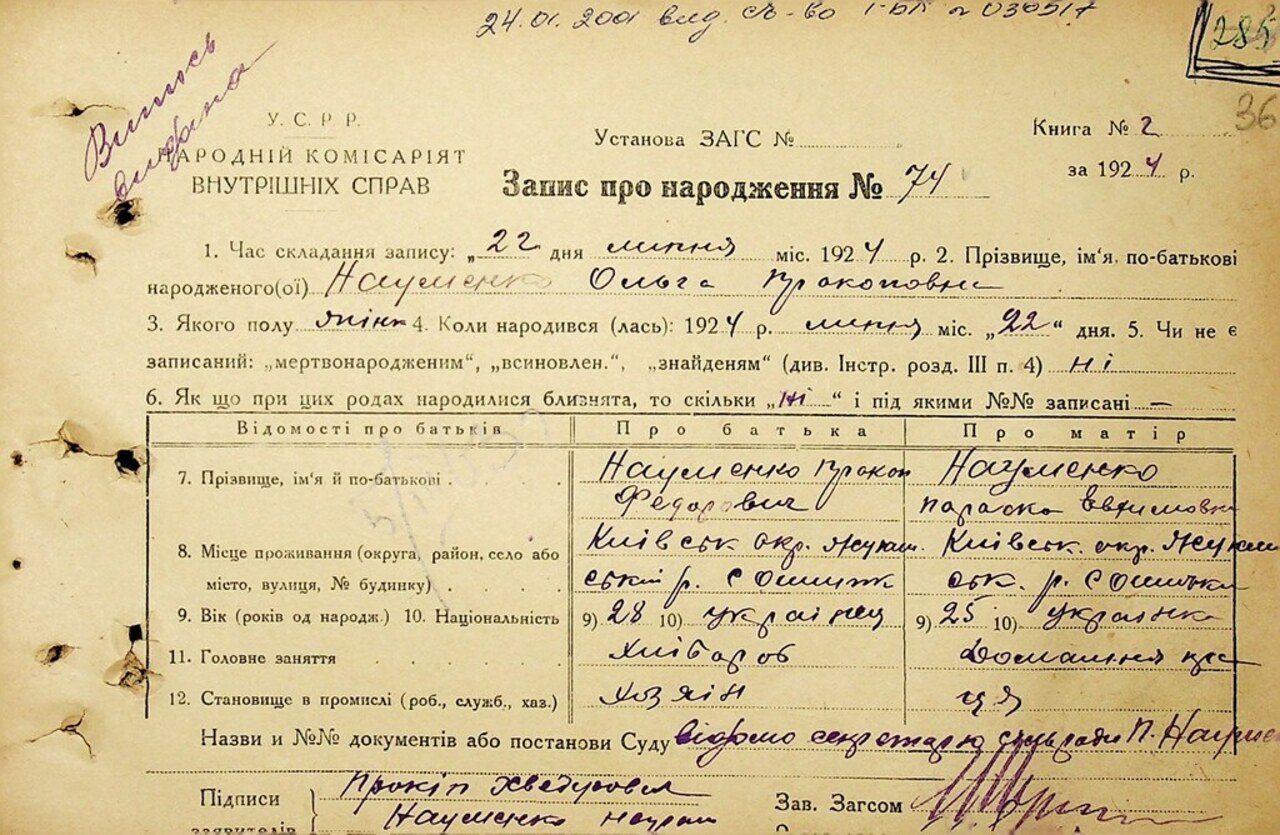 24.01.2001 вид. св-во І-БК № 030517
285
36
Випись
видана
У. С. Р. Р.
НАРОДНІЙ КОМІСАРІЯТ
ВНУТРІШНІХ СПРАВ
Установа ЗАГС №
Книга № 2
за 1924 р.
Запис про народження № 74
1. Час складання запису: „22 дня липня міс. 1924 р. 2. Прізвище, ім'я, по-батькові
народженого(ої) Науменко Ольга Прокоповна
3. Якого полу жінк 4. Коли народився (лась): 1924 р. липня міс. „22“ дня. 5. Чи не є
записаний: „мертвонародженим“, „всиновлен.“, „знайденям“ (див. Інстр. розд. III п. 4) ні
6. Як що при цих родах народилися близнята, то скільки „ні“ і під якими №№ записані —
Відомості про батьків Про батька Про матір
7. Прізвище, ім'я й по-батькові Науменко Прокоп Науменко
Федорович Параска Евфимовна
8. Місце проживання (округа, район, село або Київськ окр. Київськ. окр.
місто, вулиця, № будинку) ський р. с ськ. р. с
9. Вік (років од народж.) 10. Національність 9) 28 10) українец 9) 25 10) українка
11. Головне заняття Хлібороб Домашня
12. Становище в промислі (роб., служб., хаз.) хозяін
Назви и №№ документів або постанови Суду відомо секретарю сільради П. Науме
Підписи Прокіп Хведорович Зав. Загсом
заявителів Науменко